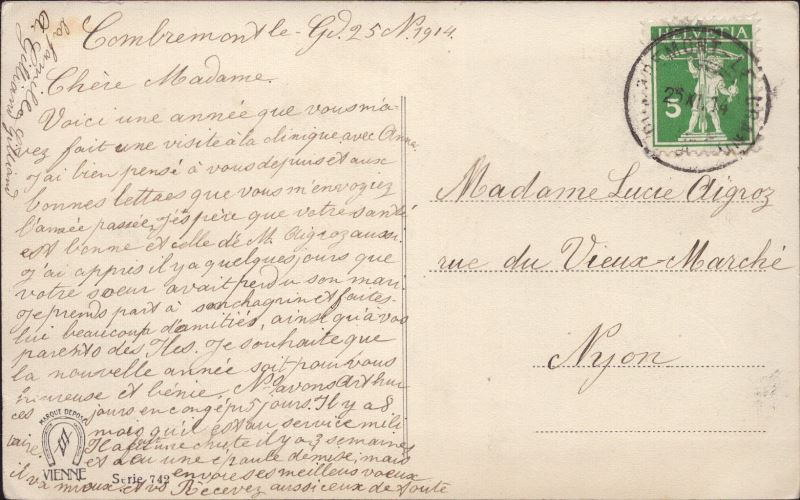 Combremont le-Gd. 25 N. 1914.
Chère Madame.
Voici une année que vous m'a-
vez fait une visite à la clinique avec Anna
J'ai bien pensé à vous depuis et aux
bonnes lettres que vous m'envoyiez
l'année passée, j'espère que votre santé
est bonne et celle de M. Aigroz aussi.
J'ai appris il y a quelques jours que
votre soeur avait perdu son mari
Je prends part à son chagrin et faites-
lui beaucoup d'amitiés, ainsi qu'à vos
parents des Iles. Je souhaite que
la nouvelle année soit pour vous
heureuse et bénie. Ns avons Arthur
ces jours en congé pr 5 jours. Il y a 8
mois qu'il est au service mili
taire. Il a fait une chute il y a 3 semaines
et a eu une épaule démise, mais
il va mieux et vs envoie ses meilleurs voeux
Recevez aussi ceux de toute
la famille
A. Gilliand Gilliand
HELVETIA
5
COMBREMONT-LE-GRAND
25.XI.14
Madame Lucie Aigroz
rue du Vieux-Marché
Nyon
MARQUE DEPOSÉ
VIENNE
Serie 742